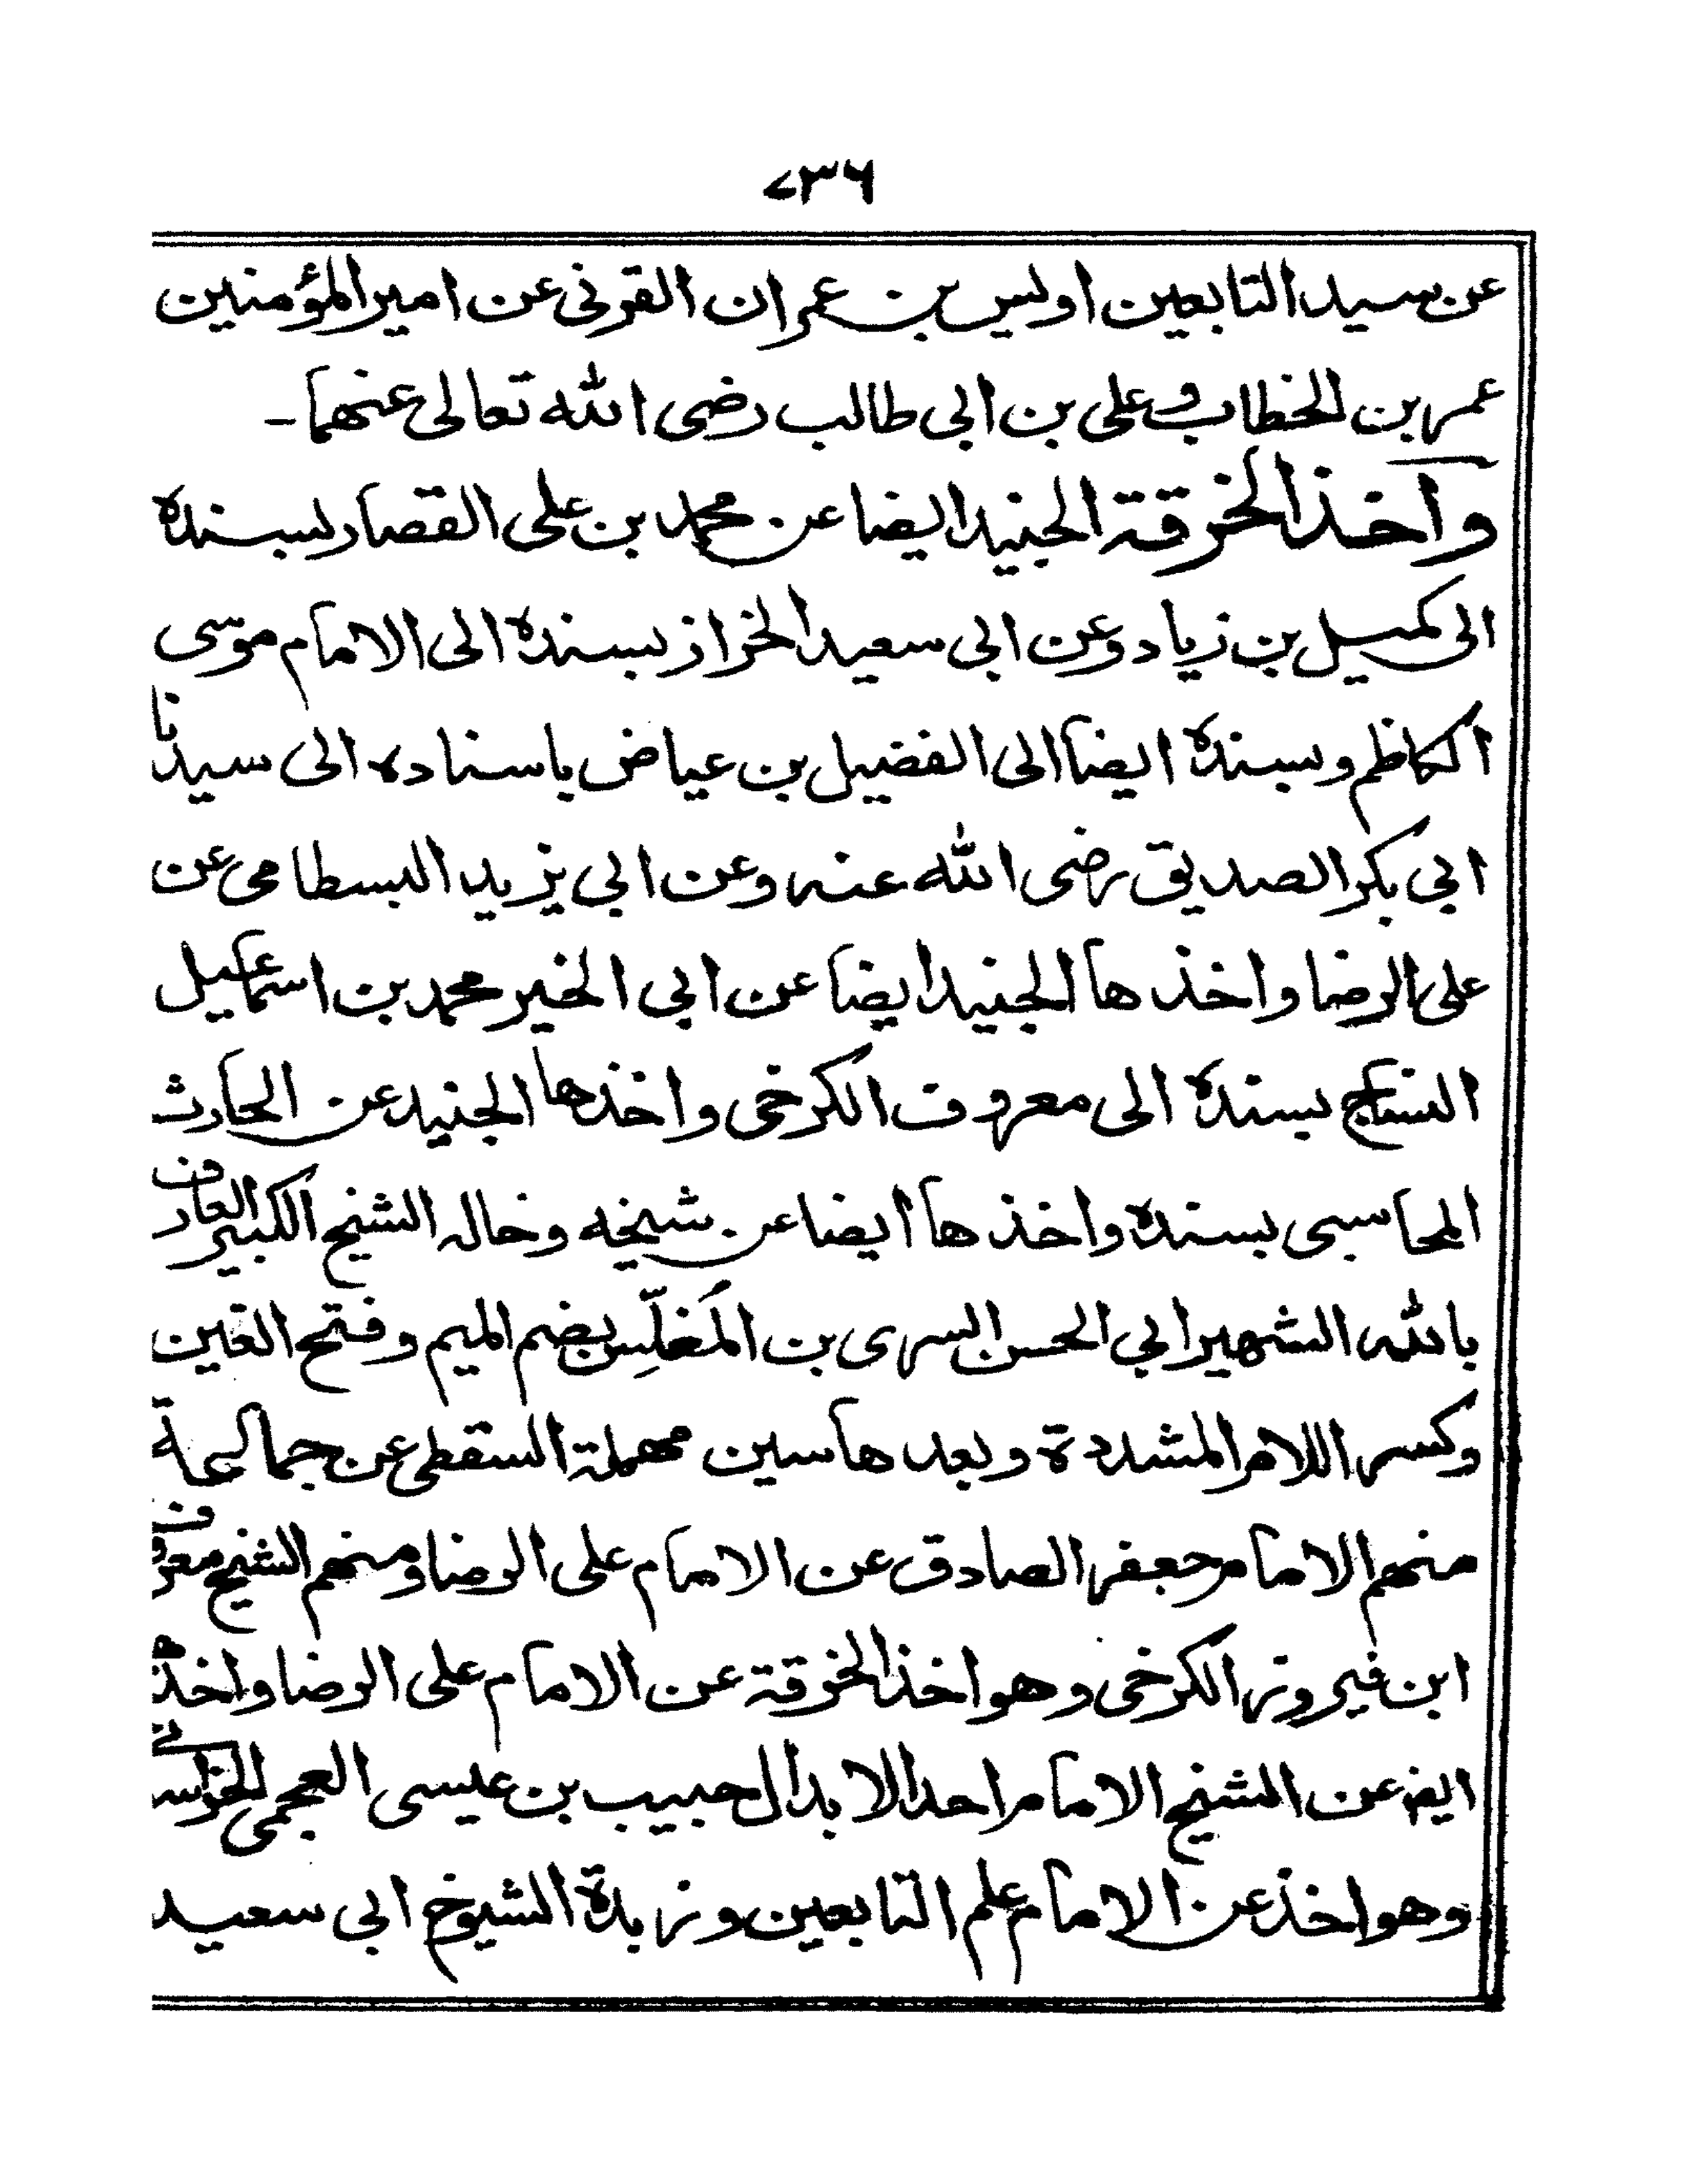 ٧٣٦
عن سيد التابعين اويس بن عمران القرنى عن امير المؤمنين
عمر بن الخطاب وعلى بن ابى طالب رضى الله تعالى عنهما۔
واخذ الخرقة الجنيد ايضا عن محمد بن على القصار بسنده
الى كميل بن زياد وعن ابى سعيد الخراز بسنده الى الامام موسى
الكاظم وبسنده ايضا الى الفضيل بن عياض باسناده الى سيدنا
ابى بكر الصديق رضى الله عنه وعن ابى يزيد البسطامى عن
على الرضا واخذها الجنيد ايضا عن ابى الخير محمد بن اسماعيل
النساج بسنده الى معروف الكرخى واخذها الجنيد عن الحارث
المحاسبى بسنده واخذها ايضا عن شيخه وخاله الشيخ الكبير العارف
بالله الشهير ابى الحسن السرى بن المُغَلِّس بضم الميم وفتح الغين
وكسر اللام المشددة وبعدها سين مهملة السقطى عن جماعة
منهم الامام جعفر الصادق عن الامام على الرضا ومنهم الشيخ معروف
ابن فيروز الكرخى وهو اخذ الخرقة عن الامام على الرضا واخذه
ايضا عن الشيخ الامام احد الابدال حبيب بن عيسى العجمى الخراسانى
وهو اخذ عن الامام علم التابعين وزبدة الشيوخ ابى سعيد